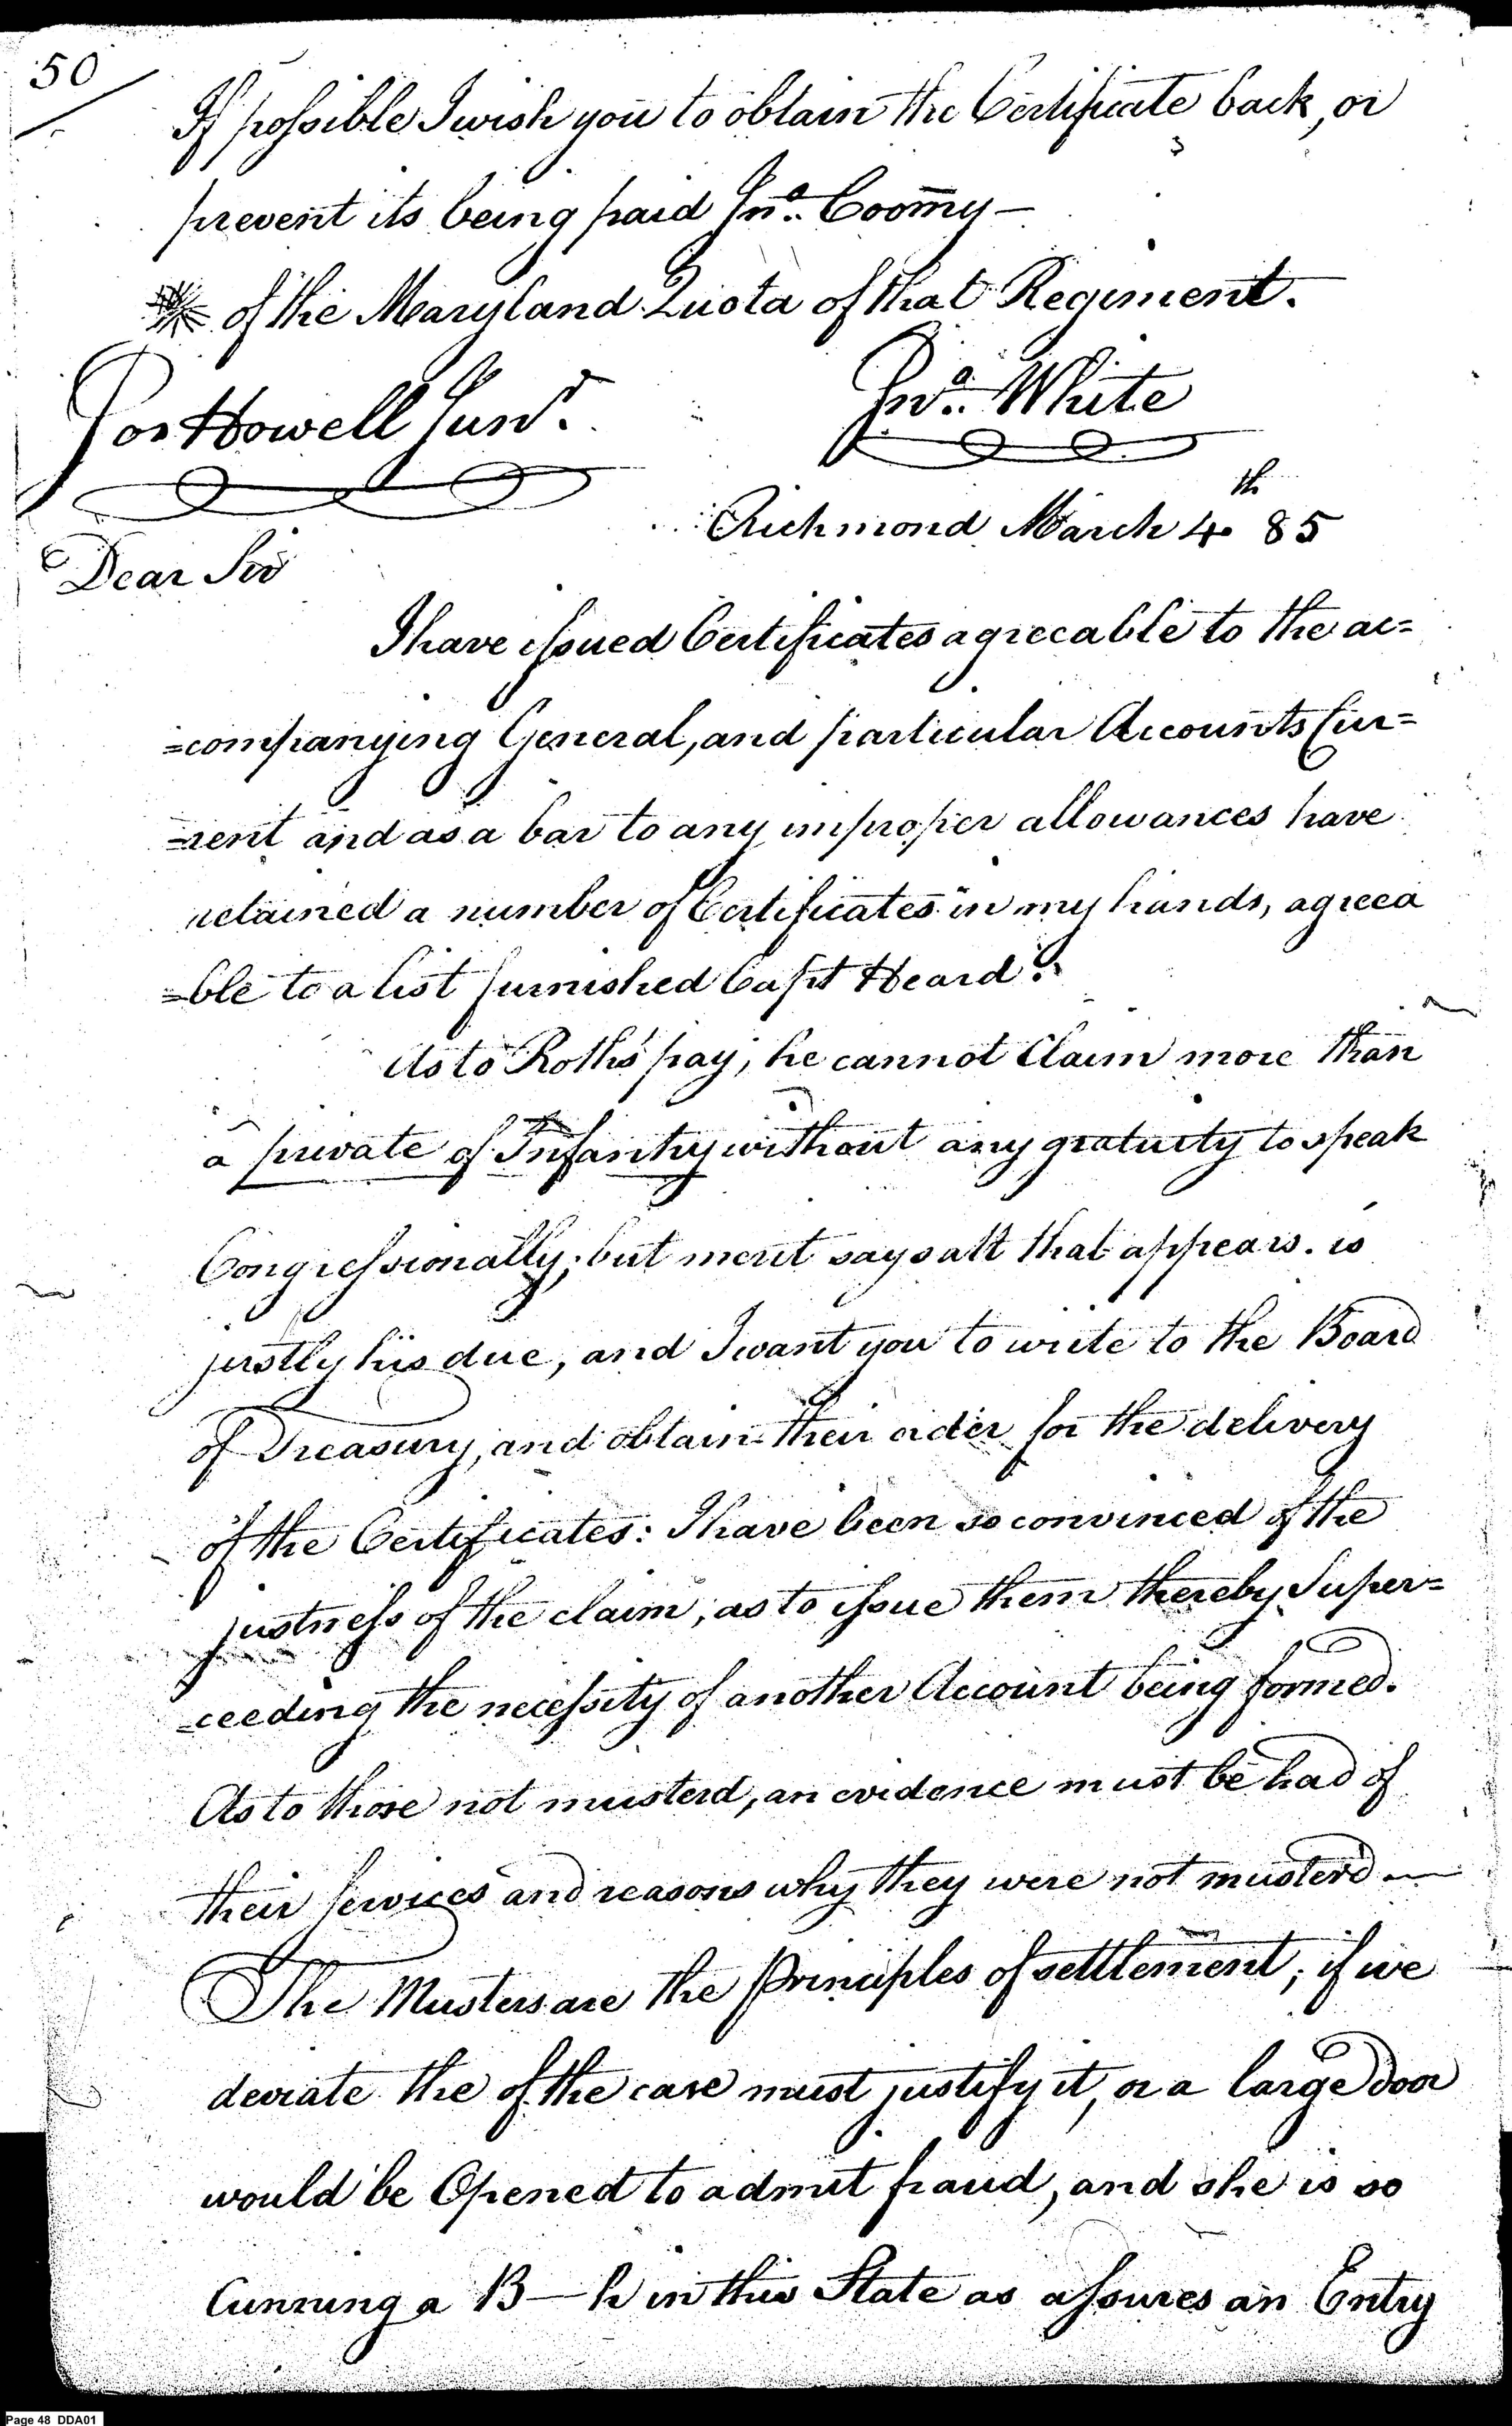 50
If possible I wish you to obtain the Certificate back, or
prevent its being paid Jnᵒ. Coomy —
of the Maryland Quota of that Regiment.
Jnᵒ. White
Jos Howell Junʳ.
Richmond March 4th 85
Dear Sir
I have issued Certificates agreeable to the ac=
=companying General, and particular Accounts Cur=
=rent and as a bar to any improper allowances have
retained a number of Certificates in my hands, agreea
=ble to a list furnished Capt Heard.
As to Roths pay, he cannot Claim more than
a private of Infantry without any gratuity to speak
Congressionally; but merit says all that appears. is
justly his due, and I want you to write to the Board
of Treasury, and obtain their order for the delivery
of the Certificates: I have been so convinced of the
justness of the claim, as to issue them thereby Super=
=ceeding the necessity of another Account being formed.
As to those not musterd, an evidence must be had of
their services and reasons why they were not musterd —
The Musters are the Principles of settlement; if we
deviate the of the case must justify it, or a large door
would be Opened to admit fraud, and she is so
Cunning a B—h in this State as assures an Entry
Page 48 DDA01